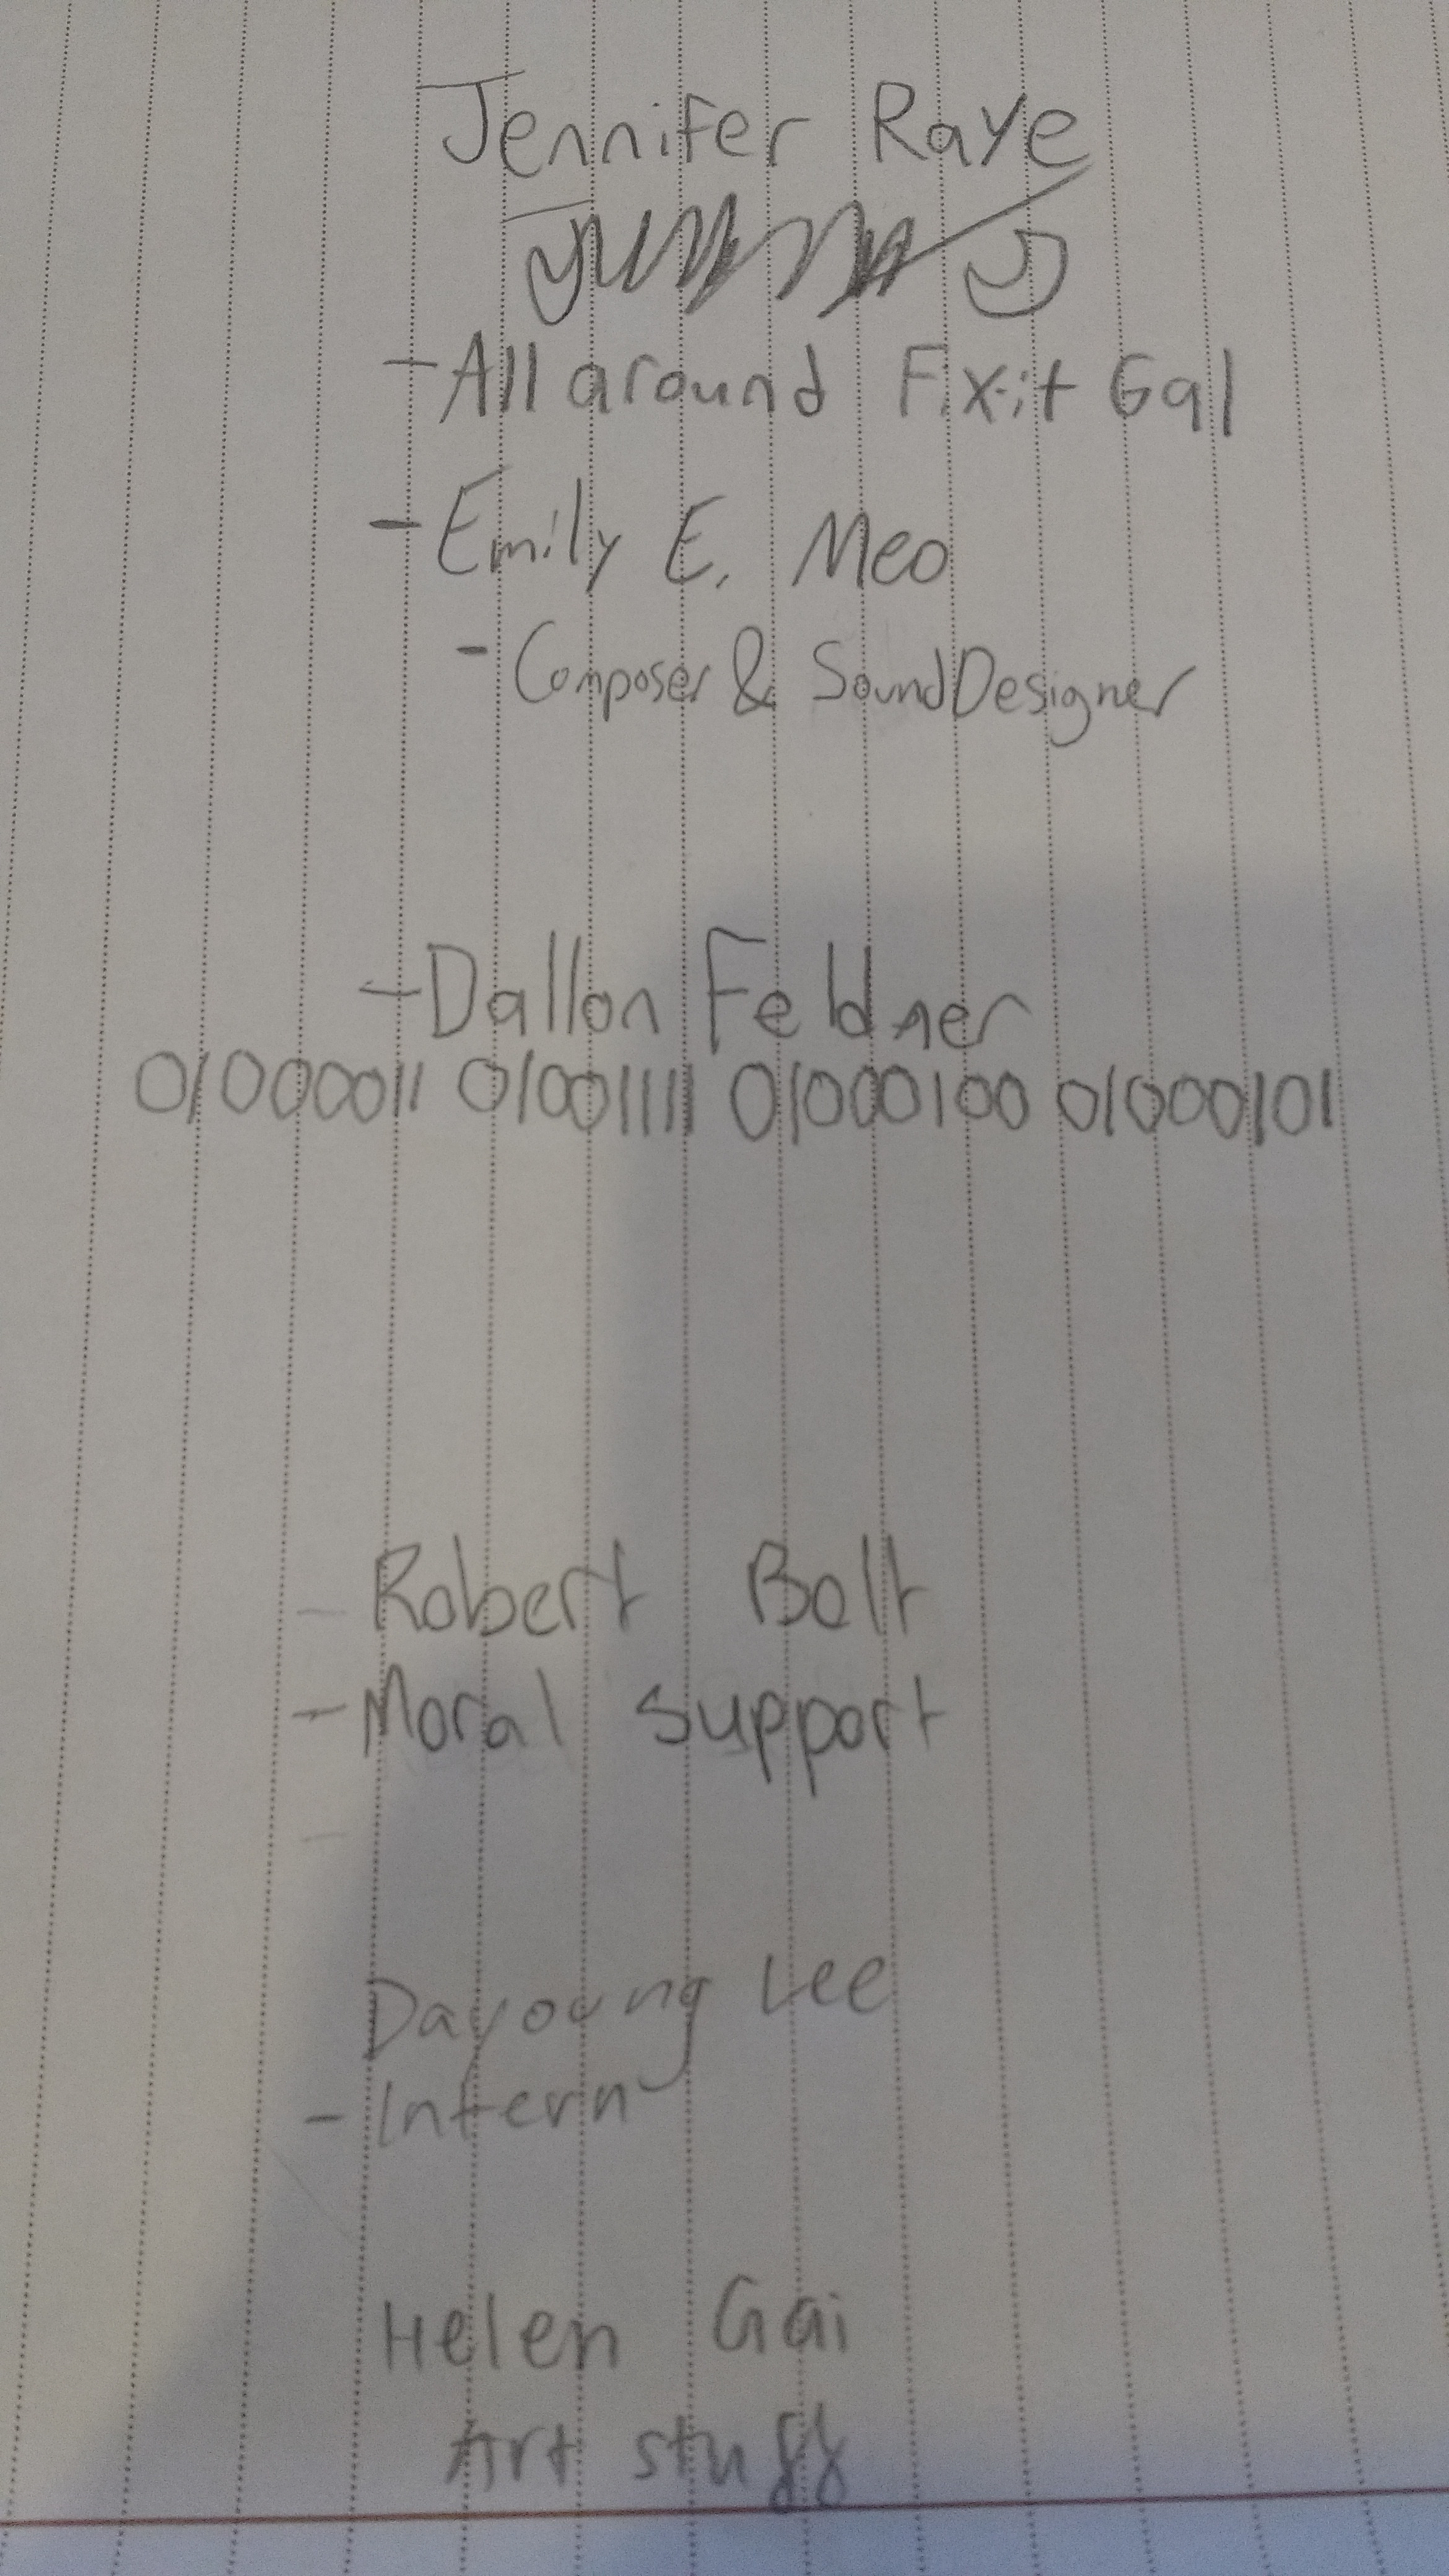 Jennifer Raye
- All around Fix-it Gal
- Emily E. Meo
- Composer & Sound Designer
- Dallon Feldner
01000011 01001111 01000100 01000101
- Robert Bolt
- Moral support
Dayoung Lee
- Intern
Helen Gai
Art stuff